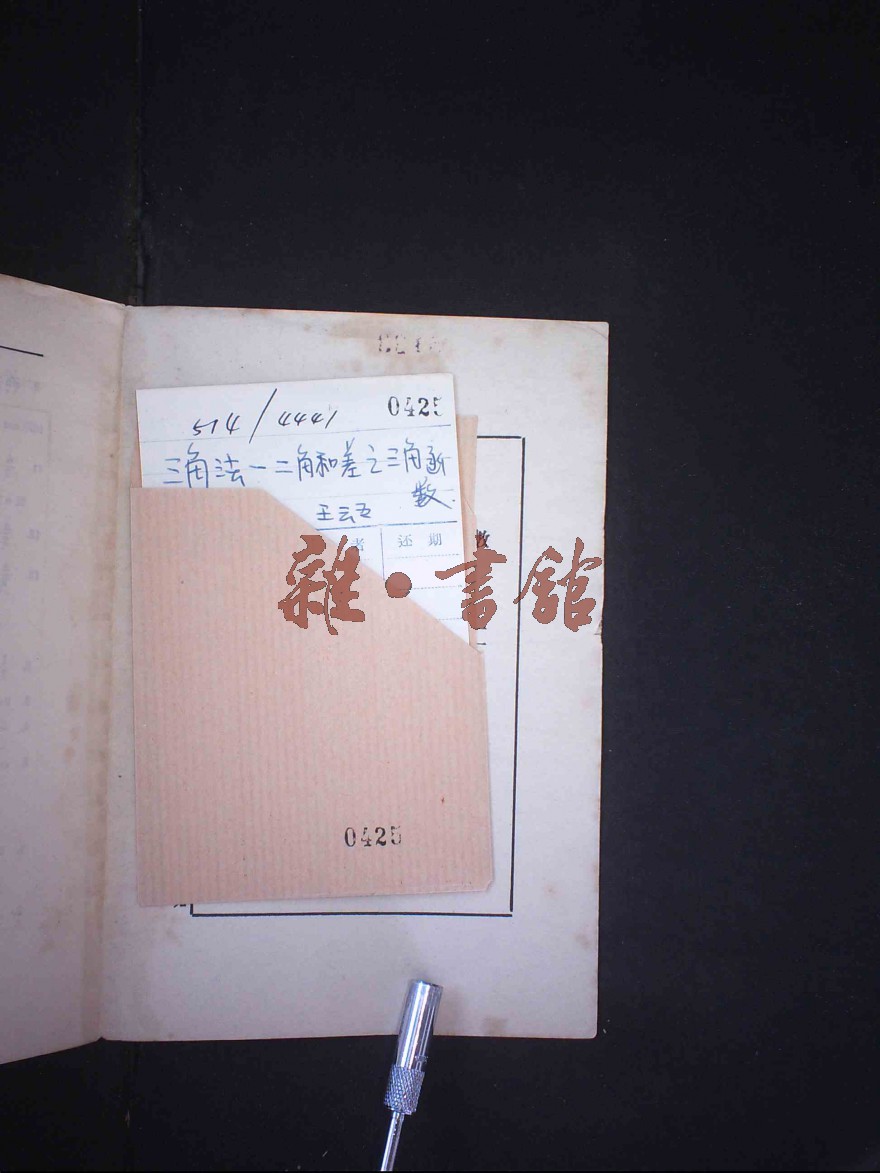 0425
514/4441
三角法一二角和差之三角函
数
王云五
者 还期
雜·書館
0425